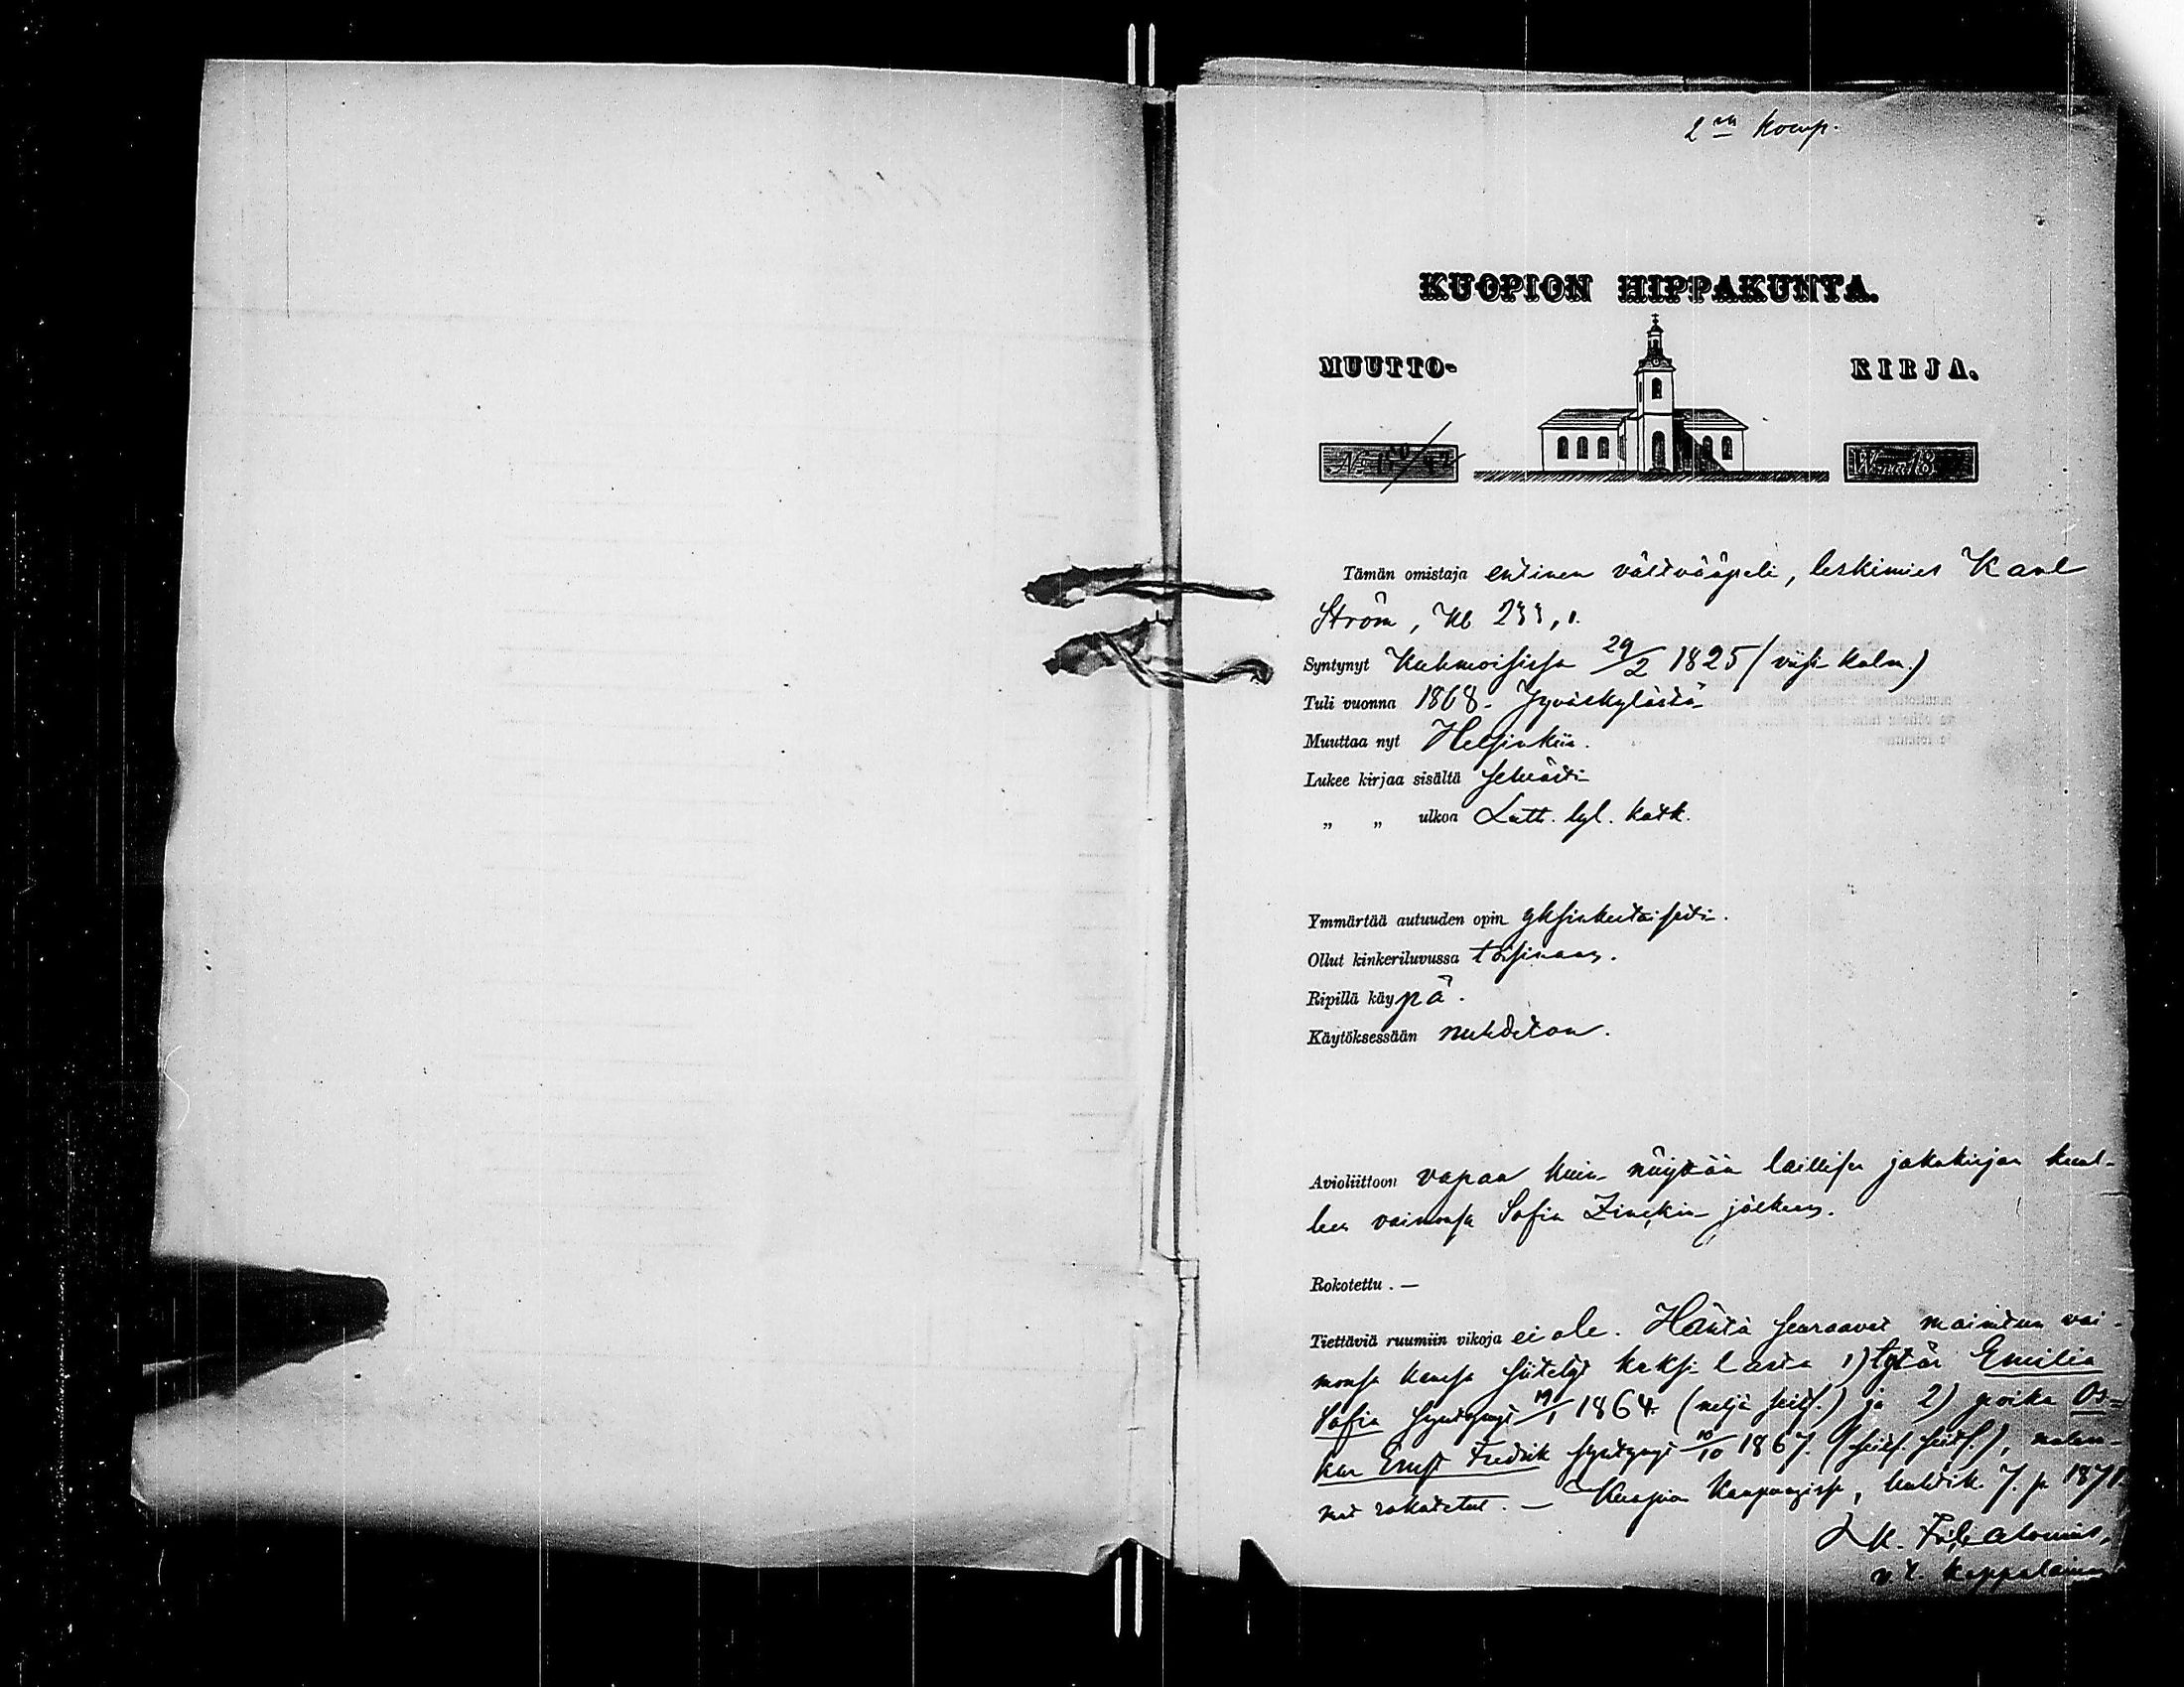 2en Komp.
KUOPION HIPPAKUNTA.
MUUTTO- KIRJA.
Tämän omistaja entinen vältvääpeli, leskimies Karl
Ström, Kb 233,1.
Syntynyt Kuhmoisissa 29/2 1825 (viisi kolm.)
Tuli vuonna 1868. Jyväskylästä
Muuttaa nyt Helsinkiin.
Lukee kirjaa sisältä selvästi
„ „ ulkoa Luth. lyl. katk.
Ymmärtää autuuden opin yksinkertaisesti.
Ollut kinkeriluvussa toisinaan.
Ripillä käypä.
Käytöksessään nuhteton.
Avioliittoon vapaa kuin näyttää laillisen jakokirjan kuol-
leen vaimonsa Sofia jälkeen.
Rokotettu. —
Tiettäviä ruumiin vikoja ei ole. Häntä seuraavat mainitun vai-
monsa kanssa siitetyt kaksi lasta 1) tytär Emilia
Sofia syntynyt 19/1 1864 (neljä seits.) ja 2) poika Os-
kar Ernst Fredrik syntynyt 10/10 1867. (seits. seits.), molem-
mat rokotetut. — Kuopion Kaupungissa, huhtik. 7. p. 1871.
v. t. kappalainen